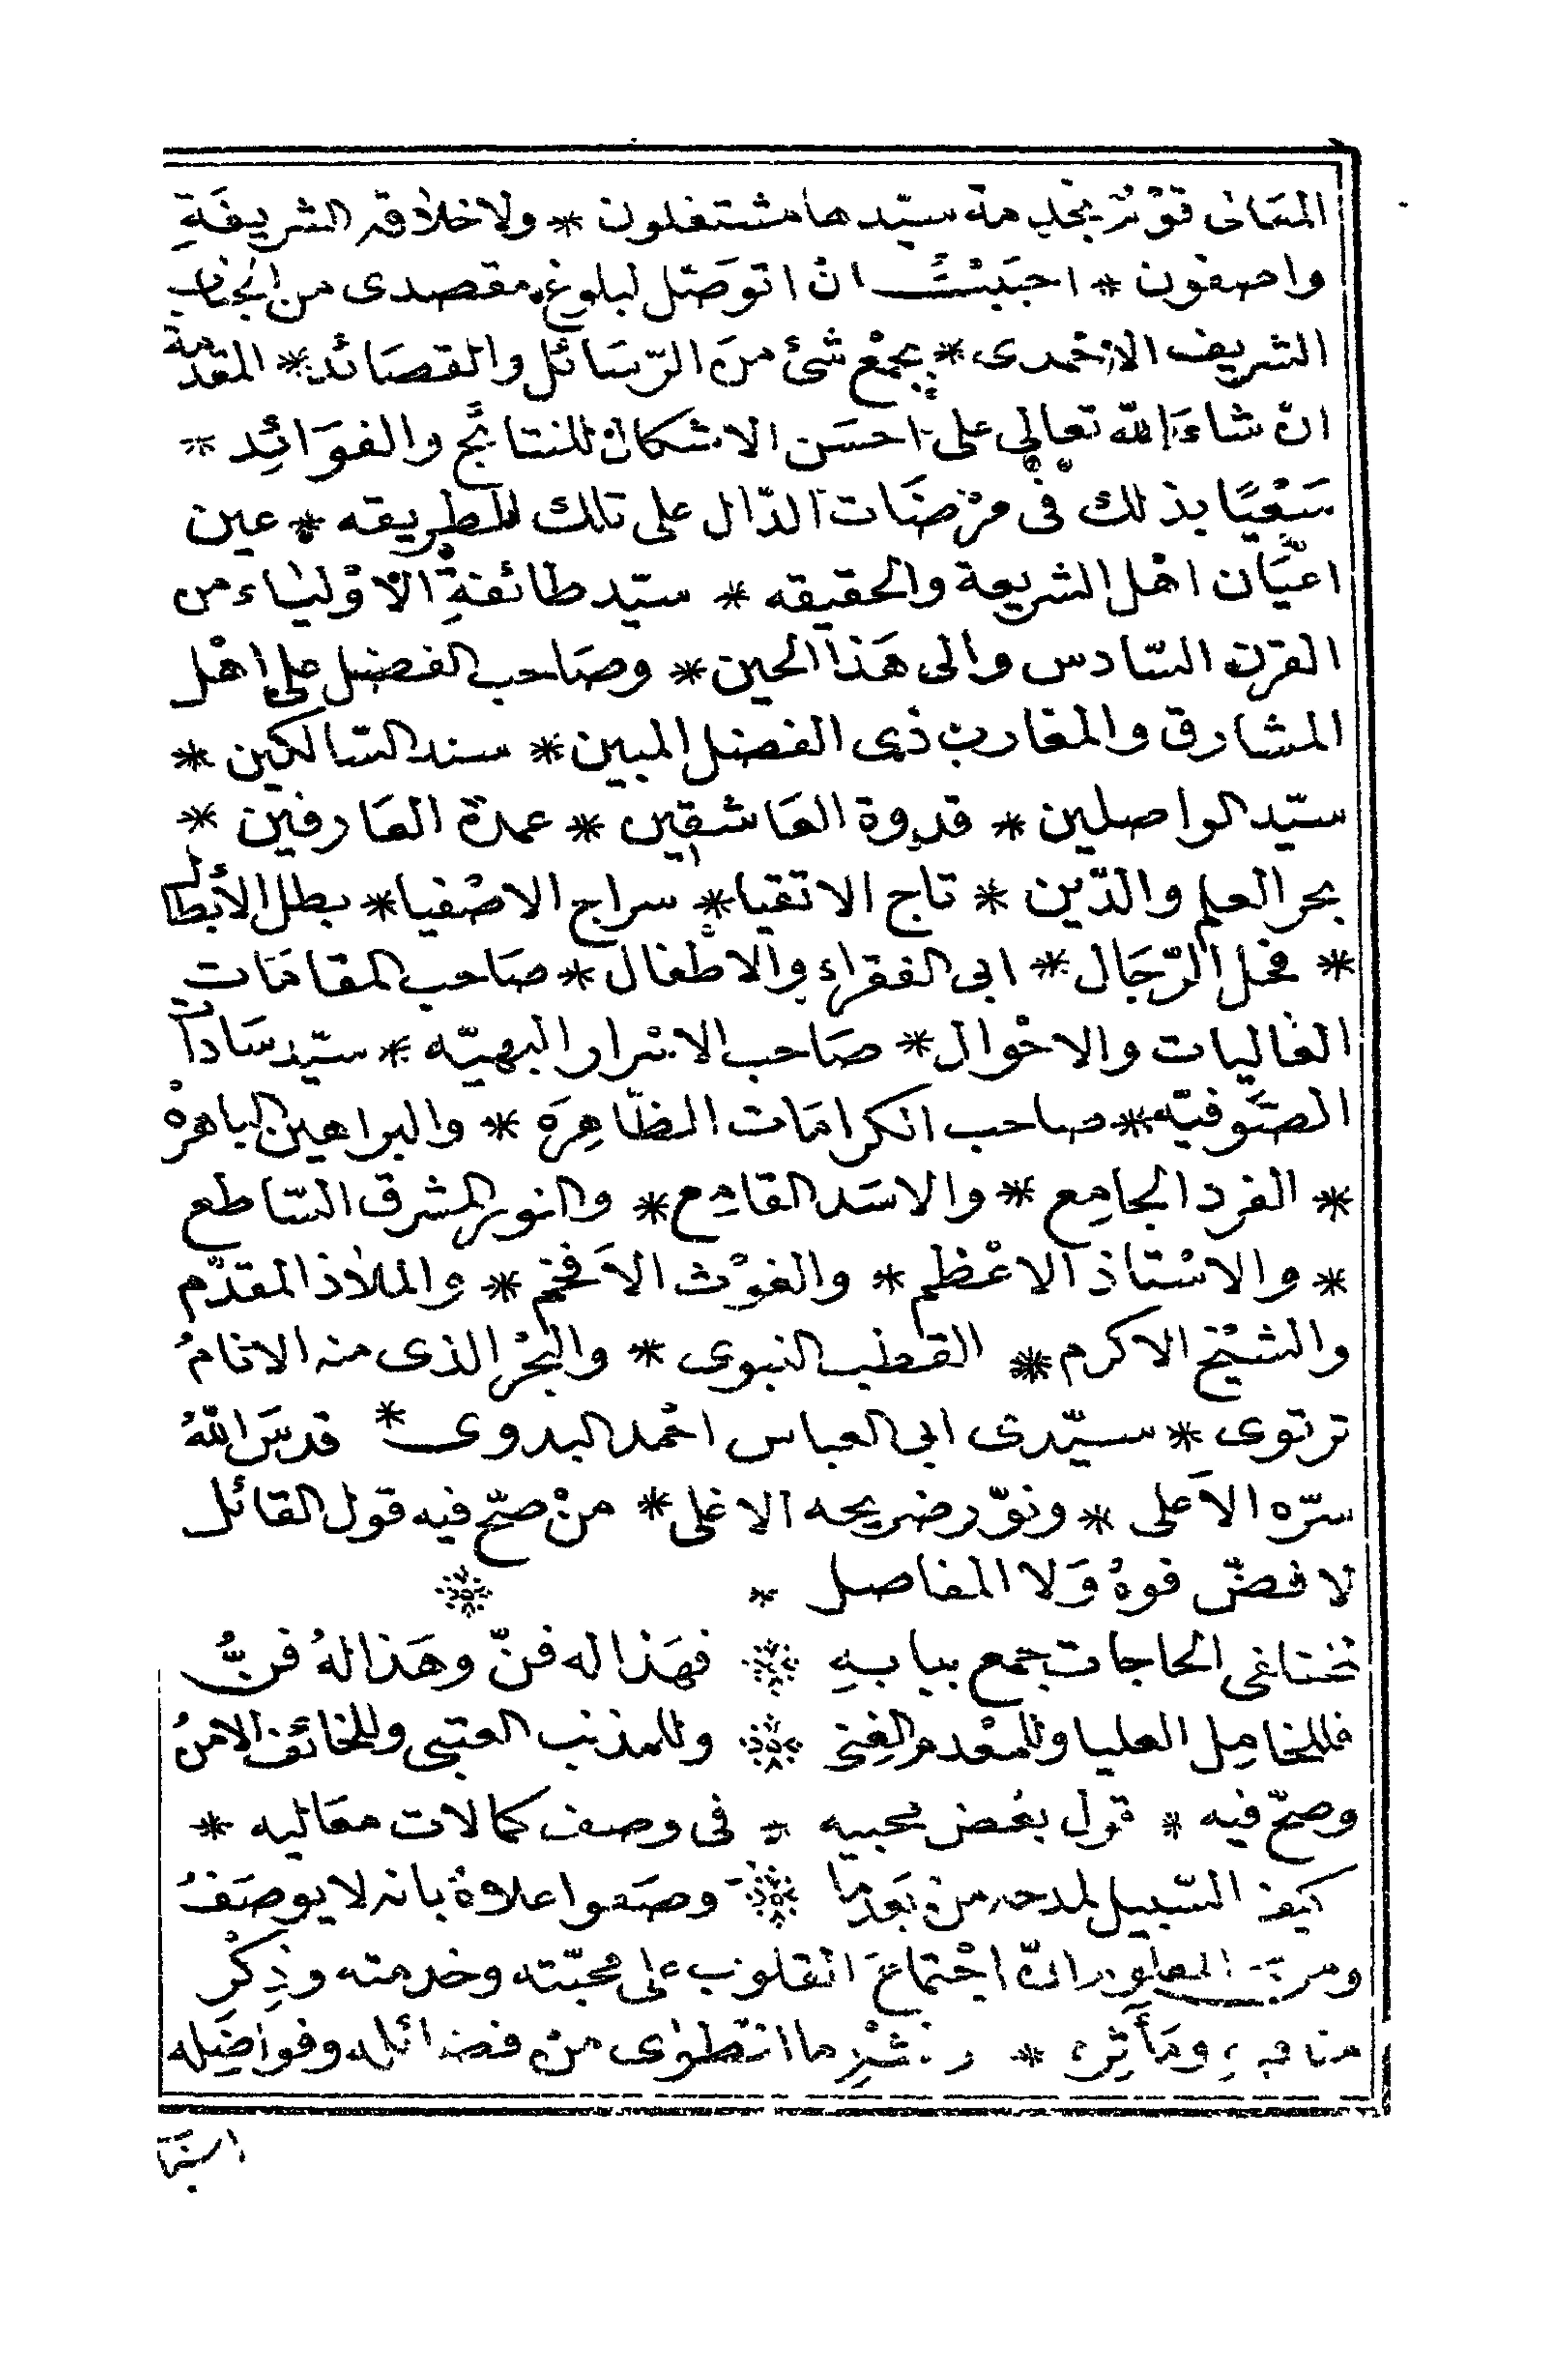 المعانى قوْمٌ بخدمة سيّدها مشتغلون * ولاخلاقه الشريفَةِ
واصفون * احبَبْتُ ان اتوصّل لبلوغ مقصدى من الجناب
الشريف الاحْمدى * بجمْع شئ منَ الرّسَائل والقصَائد * المقدمة
ان شاءَ الله تعالى على احسَن الاشكال للنتائج والفوَائِد *
سَعْيًا بذلك فى مرْضَات الدّال على تلك الطريقه * عين
اعيَان اهْل الشريعة والحقيقه * سيّد طائفةِ الاوْلياء من
القرن السّادس والى هَذا الحين * وصَاحب الفضل على اهْل
المشارق والمغارب ذى الفضل المبين * سند السّالكين *
سيّد الواصلين * قدوة العَاشقين * عمدة العَارفين *
بحر العلم والدّين * تاج الاتقيا * سراج الاصْفيا * بطل الأبْطال
* فحل الرّجَال * ابى الفقراء والاطْفال * صَاحب المقامَات
العاليات والاحْوال * صَاحب الاسْرار البهيّه * سيّد سَادات
الصّوفيّه * صاحب الكرامَات الظّاهِرَه * والبراهين الباهرهْ
* الفرد الجامِع * والاسَد القامِع * والنور المشرق السّاطع
* والاسْتاذ الاعْظم * والغوْث الاَفخم * والملاذ المقدّم
والشيْخ الاكرم * القطب النبوى * والبحْر الذى منه الانامُ
ترتوى * سيّدى ابى العباس احْمد البدوى * قدسَ اللهُ
سرّه الاَعلى * ونوّر ضريحه الاغلى * منْ صحّ فيه قول القائل
لا فضّ فوهُ وَلا المفاصل *
لمختلفى الحاجات جمع ببابهِ * فهَذا له فنّ وهَذا لهُ فنُّ
فللخامِل العليا وللمعْدم الغِنى * وللمذنب العتبى وللخائف الامنُ
وصحّ فيه * قول بعْض محبيه * فى وصف كمالات معَاليه *
كيف السّبيل لمدحه من بَعْد ما * وصَفوا علاهُ بانه لا يوصَفُ
ومن المعلوم انّ اجْتماعَ القلوب على محبّته وخدمته وذِكْرِ
مناقبه ومَأَثِره * ونشْرِ ما انطوٰى من فضائله وفواضِله